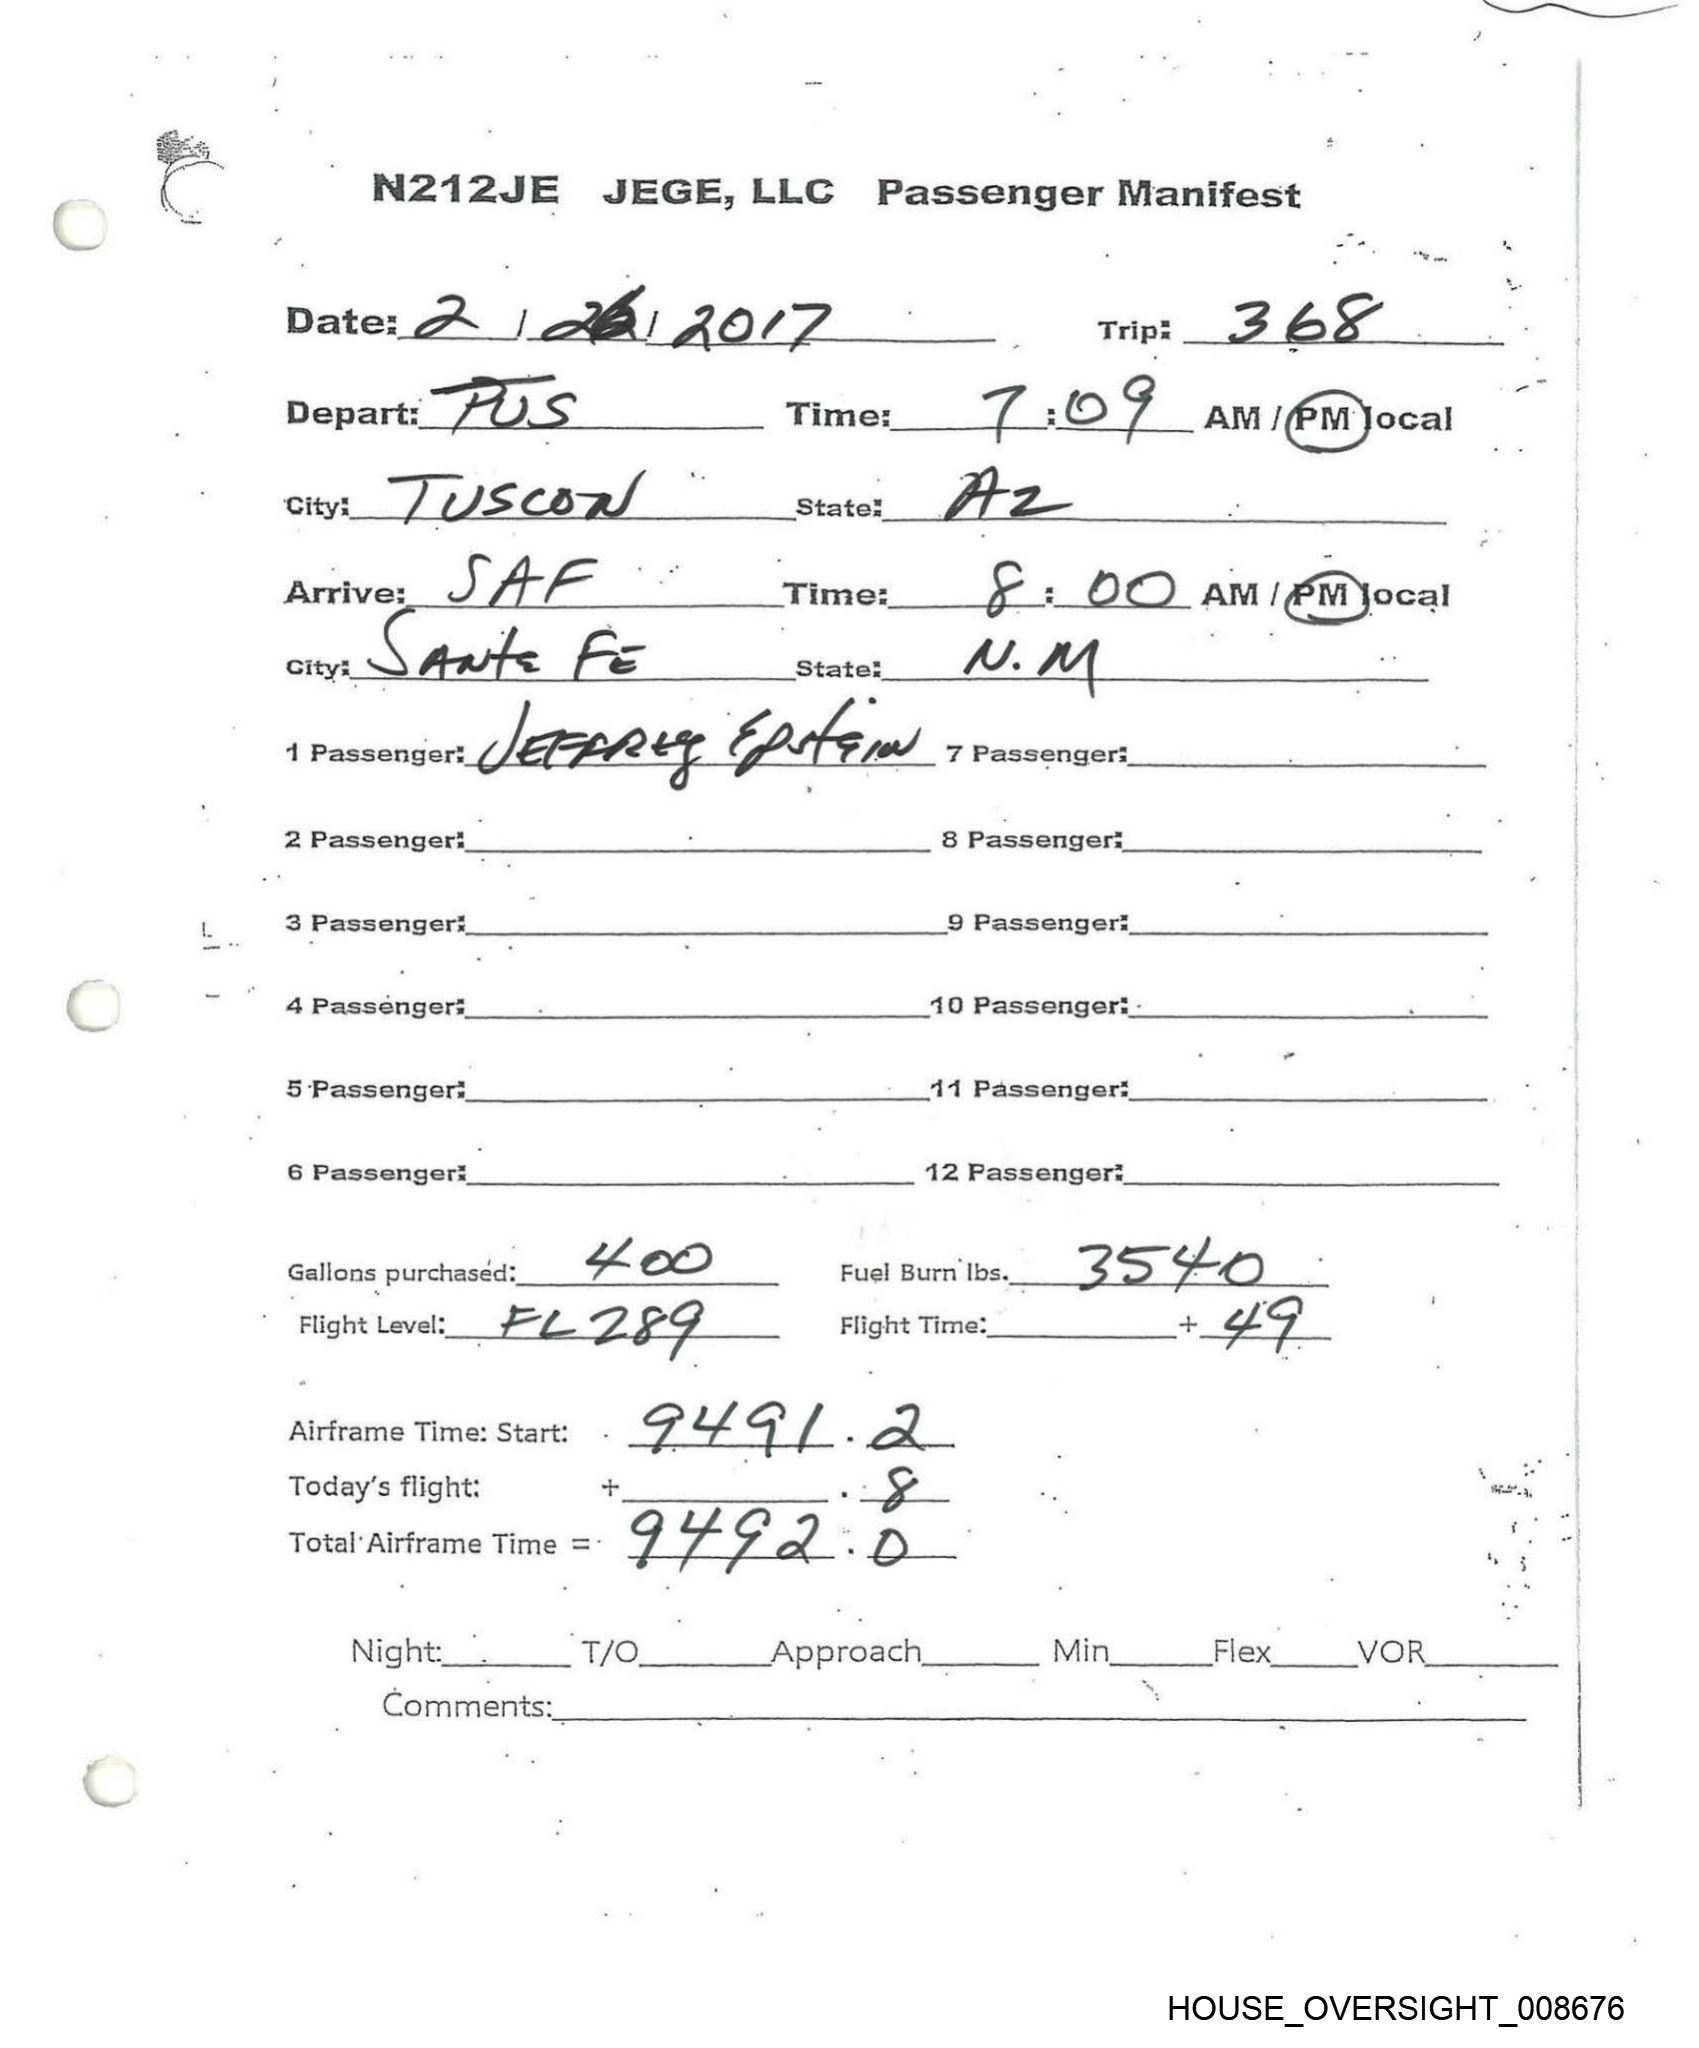 N212JE JEGE, LLC Passenger Manifest
Date: 2 / 26 / 2017 Trip: 368
Depart: TUS Time: 7:09 AM / PM local
City: TUSCON State: AZ
Arrive: SAF Time: 8:00 AM / PM local
City: SANTE FE State: N.M
1 Passenger: JEFFREY EpstEIN 7 Passenger:
2 Passenger: 8 Passenger:
3 Passenger: 9 Passenger:
4 Passenger: 10 Passenger:
5 Passenger: 11 Passenger:
6 Passenger: 12 Passenger:
Gallons purchased: 400 Fuel Burn lbs. 3540
Flight Level: FL289 Flight Time: + 49
Airframe Time: Start: 9491.2
Today's flight: + .8
Total Airframe Time = 9492.0
Night: T/O Approach Min Flex VOR
Comments:
HOUSE_OVERSIGHT_008676